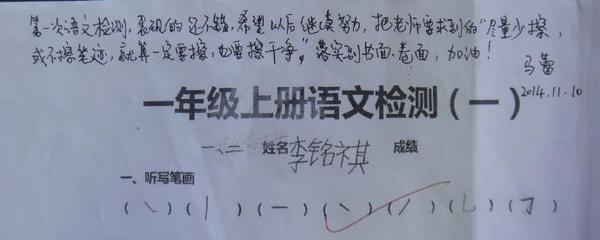 第一次语文检测，表现的还不错，希望以后继续努力，把老师要求到的“尽量少擦，
或不擦笔迹，就算一定要擦，也要擦干净”，落实到书面、卷面，加油！
马蕾
2014.11.10
一年级上册语文检测（一）
一、二 姓名李铭祺 成绩
一、听写笔画
（㇏）（丨）（一）（丶）（丿）（乚）（㇆）